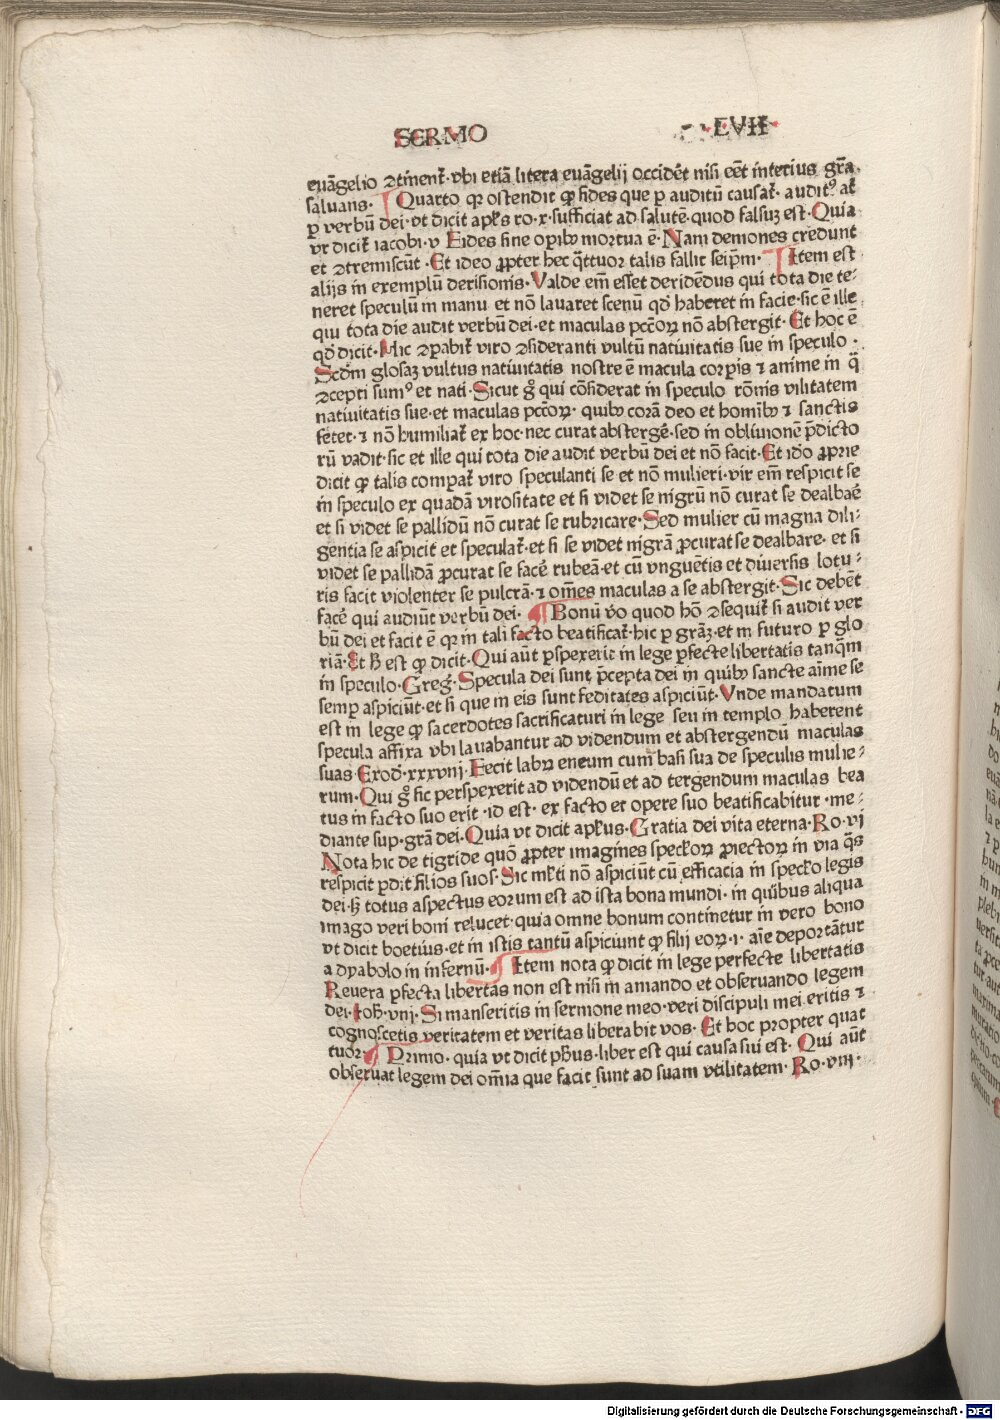 SERMO LVII
euāgelio ꝯtinenť·vbi etiā litera euāgelij occidēt nisi eēt interius grā·
saluans· Quarto qꝛ ostendit ꝙ fides que ꝑ auditū causať· auditꝰ ať
ꝑ verbū dei·vt dicit apl̄s ro·x·sufficiat ad salutē·quod falsuꝫ est·Quia
vt diciť iacobi·v Fides sine oꝑibꝰ mortua ē·Nam demones credunt
et ꝯtremiscūt·Et ideo ꝓpter hec q̄ttuoꝛ talis fallit seip̄m· Item est
alijs in exemplū derisionis·Valde em̄ esset deridēdus qui tota die te⸗
neret speculū in manu et nō lauaret scenū qđ haberet in facie·sic ē ille
qui tota die audit verbū dei·et maculas pccōꝝ nō abstergit·Et hoc ē
qđ dicit·Hic ꝯpabiť viro ꝯsideranti vultū natiuitatis sue in speculo·
Scd̄m glosaꝫ vultus natiuitatis nostre ē macula corpis ⁊ anime in q̄
ꝯcepti sumꝰ et nati·Sicut gͦ qui cōsiderat in speculo rōnis vilitatem
natiuitatis sue·et maculas pccōꝝ·quibꝰ corā deo et homībꝰ ⁊ sanctis
fetet·⁊ nō humiliať ex hoc·nec curat abstergē·sed in obliuionē p̄dicto
rū vadit·sic et ille qui tota die audit verbū dei et nō facit·Et idō ꝓprie
dicit ꝙ talis compať viro speculanti se et nō mulieri·vir em̄ respicit se
in speculo ex quadā virositate et si videt se nigrū nō curat se dealbaē
et si videt se pallidū nō curat se rubricare·Sed mulier cū magna dili⸗
gentia se aspicit et speculať·et si se videt nigrā ꝓcurat se dealbare· et si
videt se pallidā ꝓcurat se facē rubeā·et cū vnguētis et diuersis lotu⸗
ris facit violenter se pulcrā·⁊ om̄es maculas a se abstergit·Sic debēt
facē qui audiūt verbū dei· Bonū v̄o quod hō ꝯsequiť si audit ver
bū dei et facit ē qꝛ in tali facto beatificať·hic ꝑ grāꝫ·et in futuro ꝑ glo
riā·Et ß est ꝙ dicit·Qui aūt ꝑspexerit in lege ꝑfecte libertatis tanq̄m
in speculo·Greḡ·Specula dei sunt p̄cepta dei in quibꝰ sancte aīme se
semꝑ aspiciūt·et si que in eis sunt feditates aspiciūt·Vnde mandatum
est in lege ꝙ sacerdotes sacrificaturi in lege seu in templo haberent
specula affixa vbi lauabantur ad videndum et abstergendū maculas
suas·Exod̄·xxxviij·Fecit labꝝ eneum cum basi sua de speculis mulie⸗
rum·Qui gͦ sic perspexerit ad videndū et ad tergendum maculas bea
tus in facto suo erit·id est· ex facto et opere suo beatificabitur·me⸗
diante sup·grā dei·Quia vt dicit apl̄us·Gratia dei vita eterna·Ro·vi
Nota hic de tigride quō ꝓpter imagines speckoꝝ ꝓiectoꝝ in via q̄s
respicit ꝑdit filios suos·Sic ml̄ti nō aspiciūt cū efficacia in specl̄o legis
dei·ß totus aspectus eorum est ad ista bona mundi·in quibus aliqua
imago veri boni relucet·quia omne bonum continetur in vero bono
vt dicit boetius·et in istis tantū aspiciunt ꝙ filij eoꝝ·i·aīe deportātur
a dyabolo in infernū· Item nota ꝙ dicit in lege perfecte libertatis
Reuera ꝑfecta libertas non est nisi in amando et obseruando legem
dei·Ioh̄·viij·Si manseritis in sermone meo·veri discipuli mei eritis ⁊
cognoscetis veritatem et veritas liberabit vos·Et hoc propter quat
tuor· Primo·quia vt dicit pħus·liber est qui causa sui est·Qui aūt
obseruat legem dei om̄ia que facit sunt ad suam vtilitatem·Ro·viij·
Digitalisierung gefördert durch die Deutsche Forschungsgemeinschaft - DFG